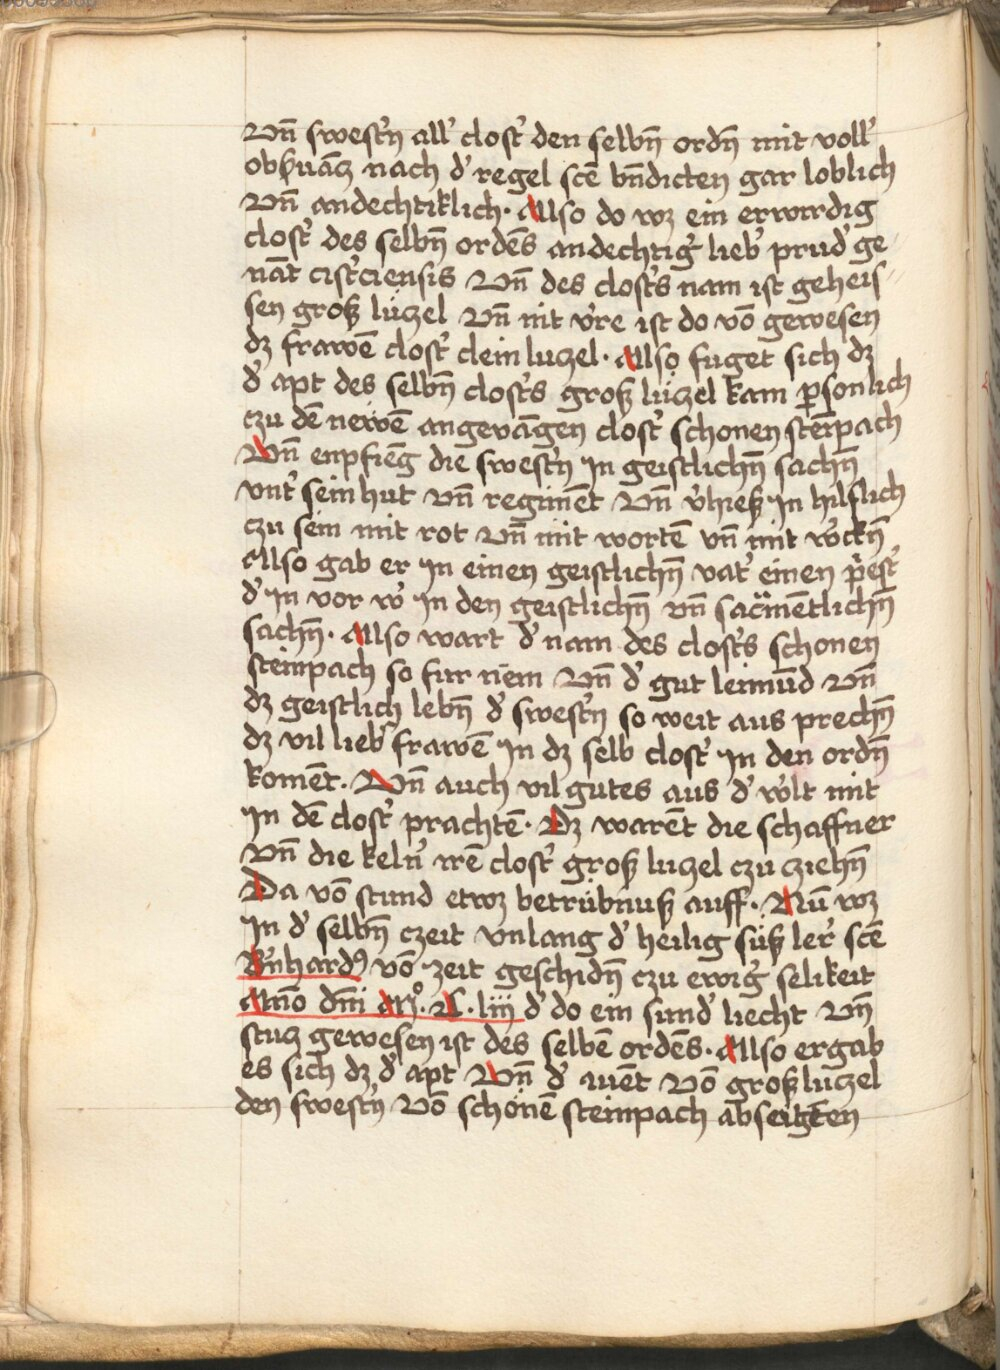 Vn̄ swest'n all' clost' den selbn̄ ordn̄ mit voll'
obs'uācz nach d' regel scē bn̄dicten gar loblich
Vn̄ andechtiklich. Also do wz ein erwirdig
clost' des selbn̄ ordēs andechtig' lieb' prud' ge
nāt cist'ciensis Vn̄ des clost's nam ist geheis
sen groß lüczel Vn̄ nit v're ist do vō gewesen
dz frawē clost' clein luczel. Also fuget sich dz
d' apt des selbn̄ clost's groß lüczel kam p̱sonlich
czu dē newē angevāgen clost' schonen steīpach
Vn̄ enpfieḡ die swest'n In geistlichn̄ sachn̄
vnt' sein hut vn̄ regimēt Vn̄ v'hieß In hilflich
czu sein mit rot Vn̄ mit wortē vn̄ mit w'ckn̄
Also gab er In einen geistlichn̄ vat' einen p'est'
d' In vor w' In den geistlichn̄ vn̄ sacmētlichn̄
sachn̄. Also wart d' nam des clost's schonen
steinpach so fur nem Vn̄ d' gut leimūd Vn̄
dz geistlich lebn̄ d' swest'n so weit aus prechn̄
dz vil lieb' frawē In dz selb clost' In den ordn̄
komēt. Vn̄ auch vil gutes aus d' w'lt mit
In dē clost' prachtē. Dz warēt die schaffner
Vn̄ die keln' irē clost' groß luczel czu cziehn̄
Da vō stund etwz betrübnuß auff. Nū wz
In d' selbn̄ czeit vnlang d' heilig süß ler' scē
B'nhard9 vō zeit geschidn̄ czu ewig' selikeit
Anō dm̄i M°. C. liii d' do ein sund' liecht Vn̄
stucz gewesen ist des selbē ordēs. Also ergab
es sich dz d' apt Vn̄ d' uēt Vō groß lüczel
den swest'n Vō schönē steinpach abseigten